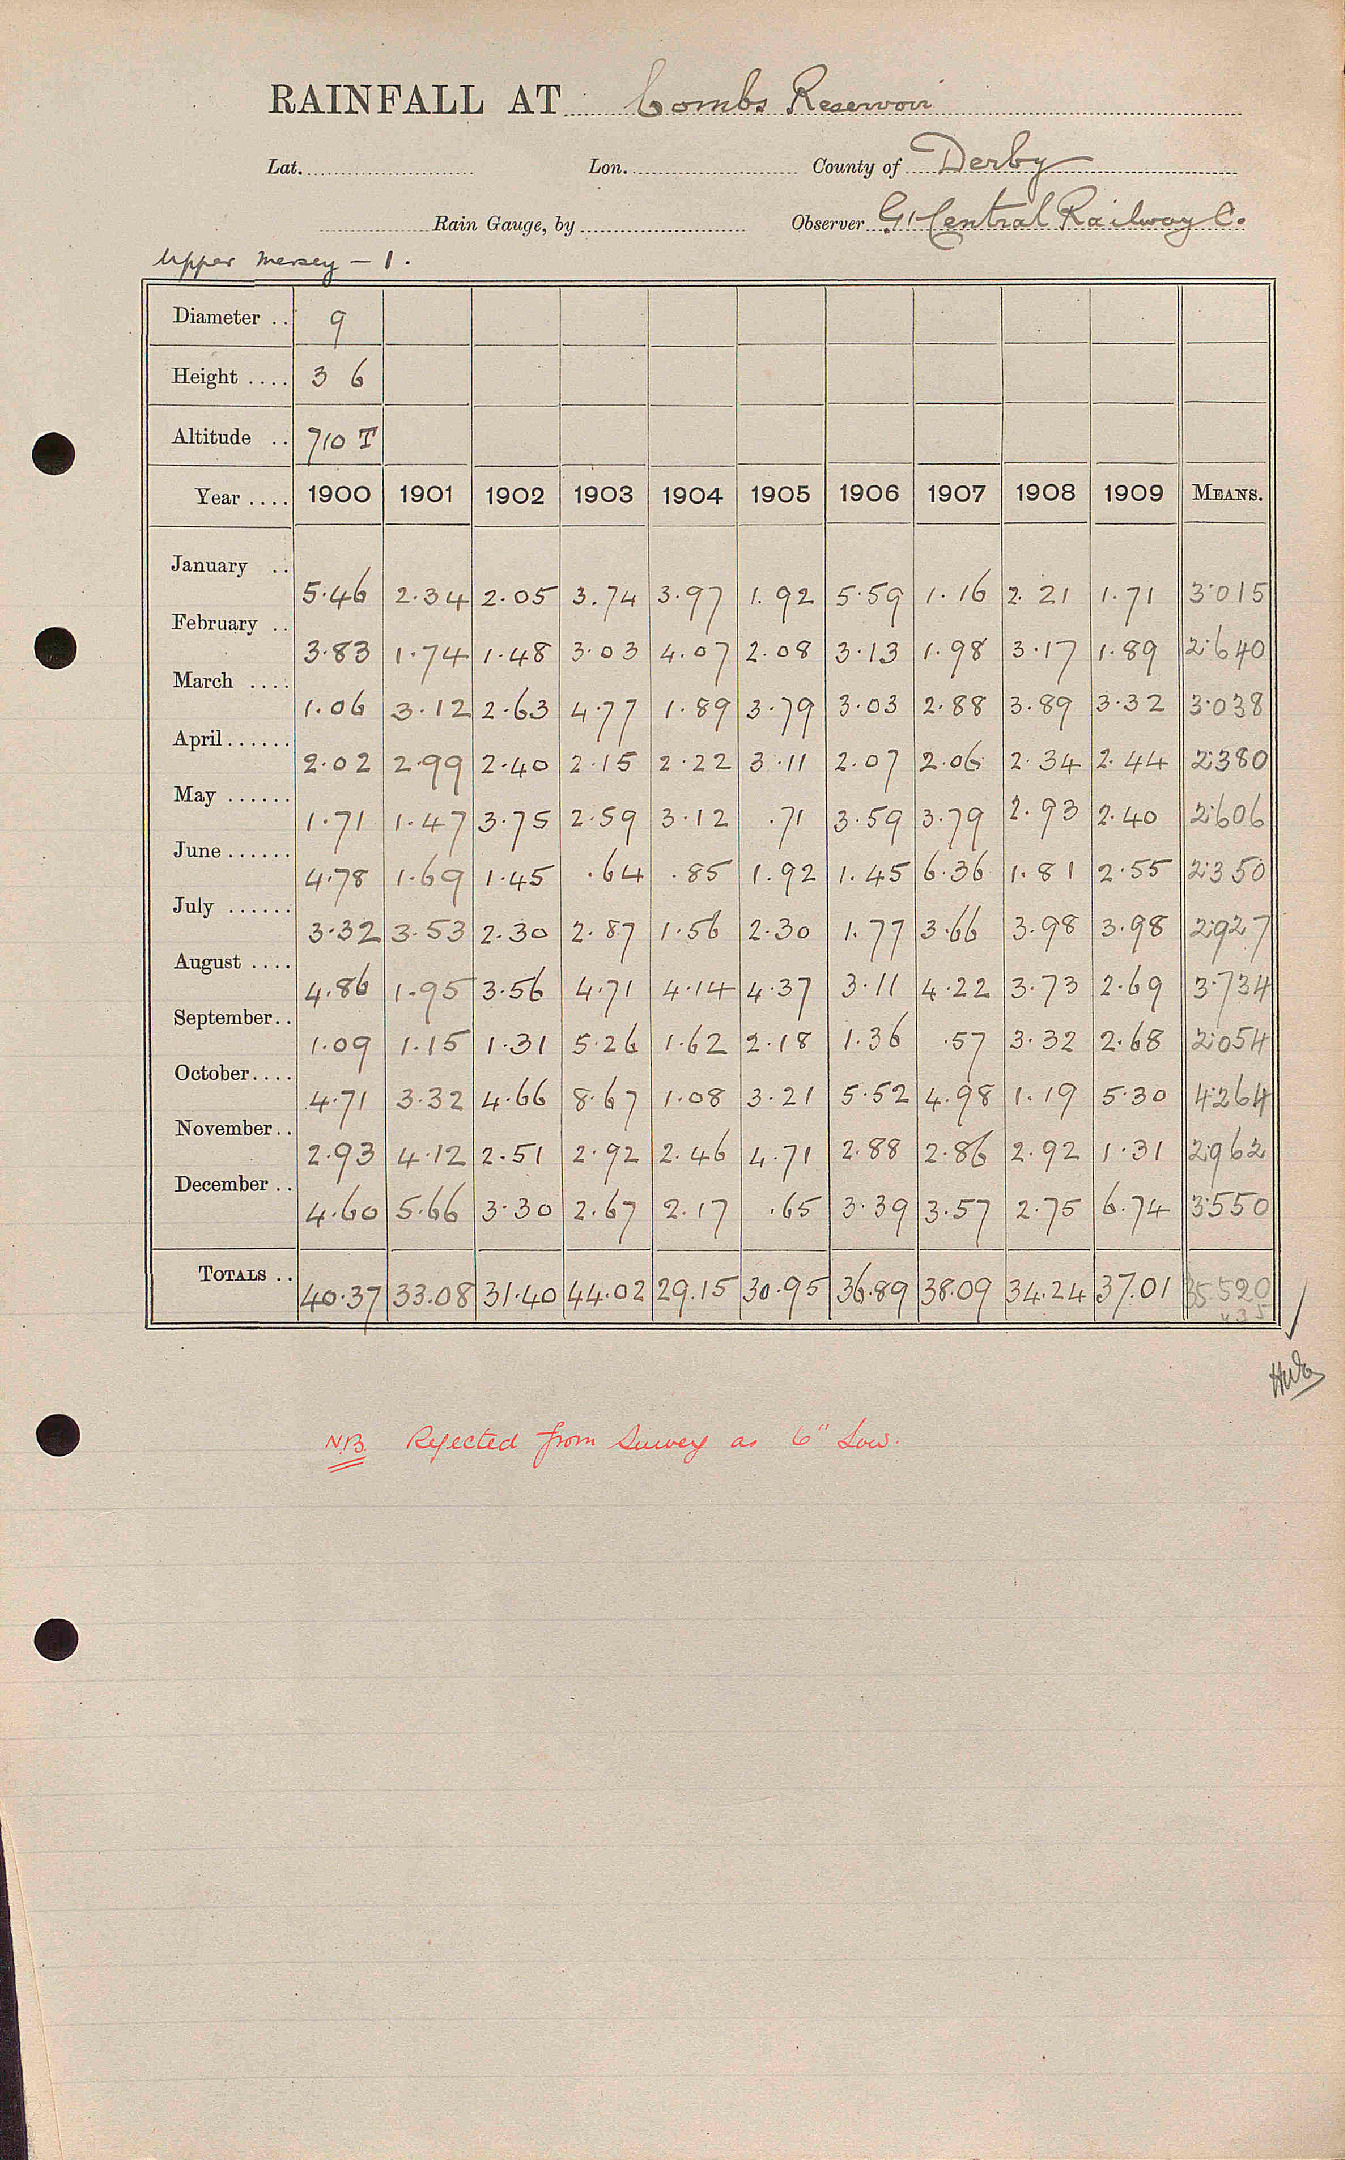 RAINFALL AT Combs Reservoir
Lat. Lon. County of Derby
Rain Gauge, by Observer Gt Central Railway Co.
Upper Mersey – 1.
Diameter .. 9
Height .... 3 6
Altitude .. 710 T
Year .... 1900 1901 1902 1903 1904 1905 1906 1907 1908 1909 MEANS.
January .. 5.46 2.34 2.05 3.74 3.97 1.92 5.59 1.16 2.21 1.71 3.015
February .. 3.83 1.74 1.48 3.03 4.07 2.08 3.13 1.98 3.17 1.89 2.640
March .... 1.06 3.12 2.63 4.77 1.89 3.79 3.03 2.88 3.89 3.32 3.038
April...... 2.02 2.99 2.40 2.15 2.22 3.11 2.07 2.06 2.34 2.44 2.380
May ...... 1.71 1.47 3.75 2.59 3.12 .71 3.59 3.79 2.93 2.40 2.606
June...... 4.78 1.69 1.45 .64 .85 1.92 1.45 6.36 1.81 2.55 2.350
July ...... 3.32 3.53 2.30 2.87 1.56 2.30 1.77 3.66 3.98 3.98 2.927
August .... 4.86 1.95 3.56 4.71 4.14 4.37 3.11 4.22 3.73 2.69 3.734
September.. 1.09 1.15 1.31 5.26 1.62 2.18 1.36 .57 3.32 2.68 2.054
October.... 4.71 3.32 4.66 8.67 1.08 3.21 5.52 4.98 1.19 5.30 4.264
November.. 2.93 4.12 2.51 2.92 2.46 4.71 2.88 2.86 2.92 1.31 2.962
December .. 4.60 5.66 3.30 2.67 2.17 .65 3.39 3.57 2.75 6.74 3.550
TOTALS .. 40.37 33.08 31.40 44.02 29.15 30.95 36.89 38.09 34.24 37.01 35.520
N.B. Rejected from Survey as 6" Low.